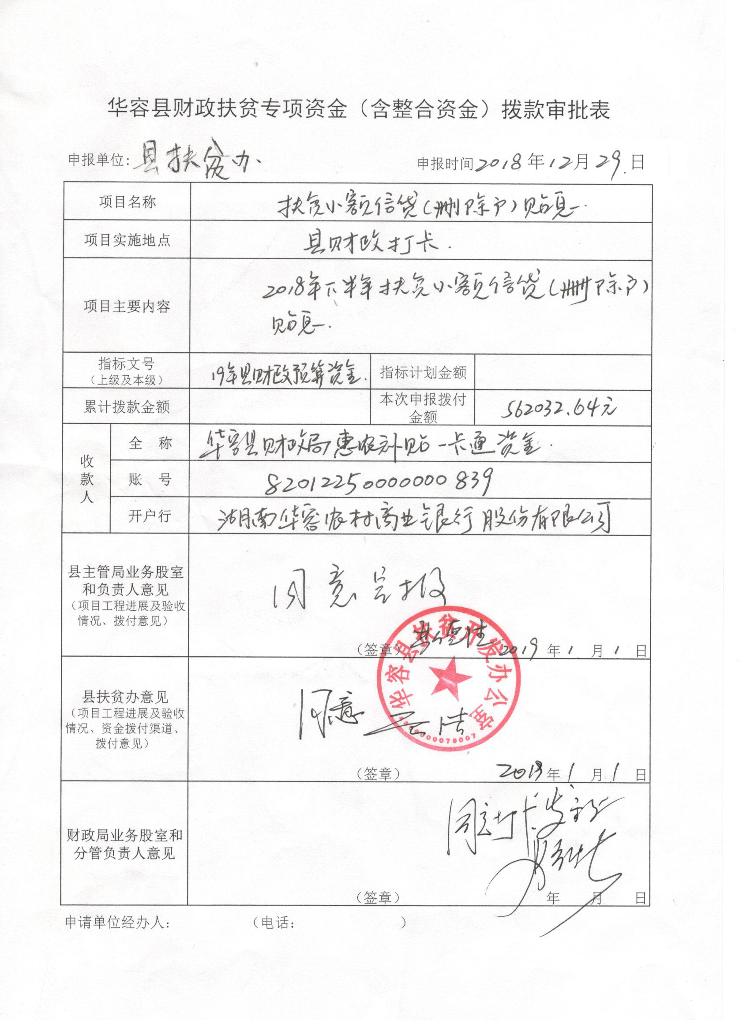 华容县财政扶贫专项资金（含整合资金）拨款审批表
申报单位: 县扶贫办 申报时间2018年12月29.日
项目名称 扶贫小额信贷(删除户)贴息
项目实施地点 县财政打卡.
项目主要内容 2018年下半年扶贫小额信贷(删除户)
贴息
指标文号
（上级及本级） 19年县财政预算资金. 指标计划金额
累计拨款金额 本次申报拨付
金额 562032.64元
收款人 全 称 华容县财政局惠农补贴一卡通资金.
账 号 82012250000000839
开户行 湖南华容农村商业银行股份有限公司
县主管局业务股室
和负责人意见
（项目工程进展及验收
情况、拨付意见） 同意呈报
（签章） 2019年1月1日
县扶贫办意见
（项目工程进展及验收
情况、资金拨付渠道、
拨付意见） 同意
（签章） 2019年1月1日
华容县扶贫开发办公室
财政局业务股室和
分管负责人意见 同意打卡发放
（签章） 年 月 日
申请单位经办人： （电话： ）